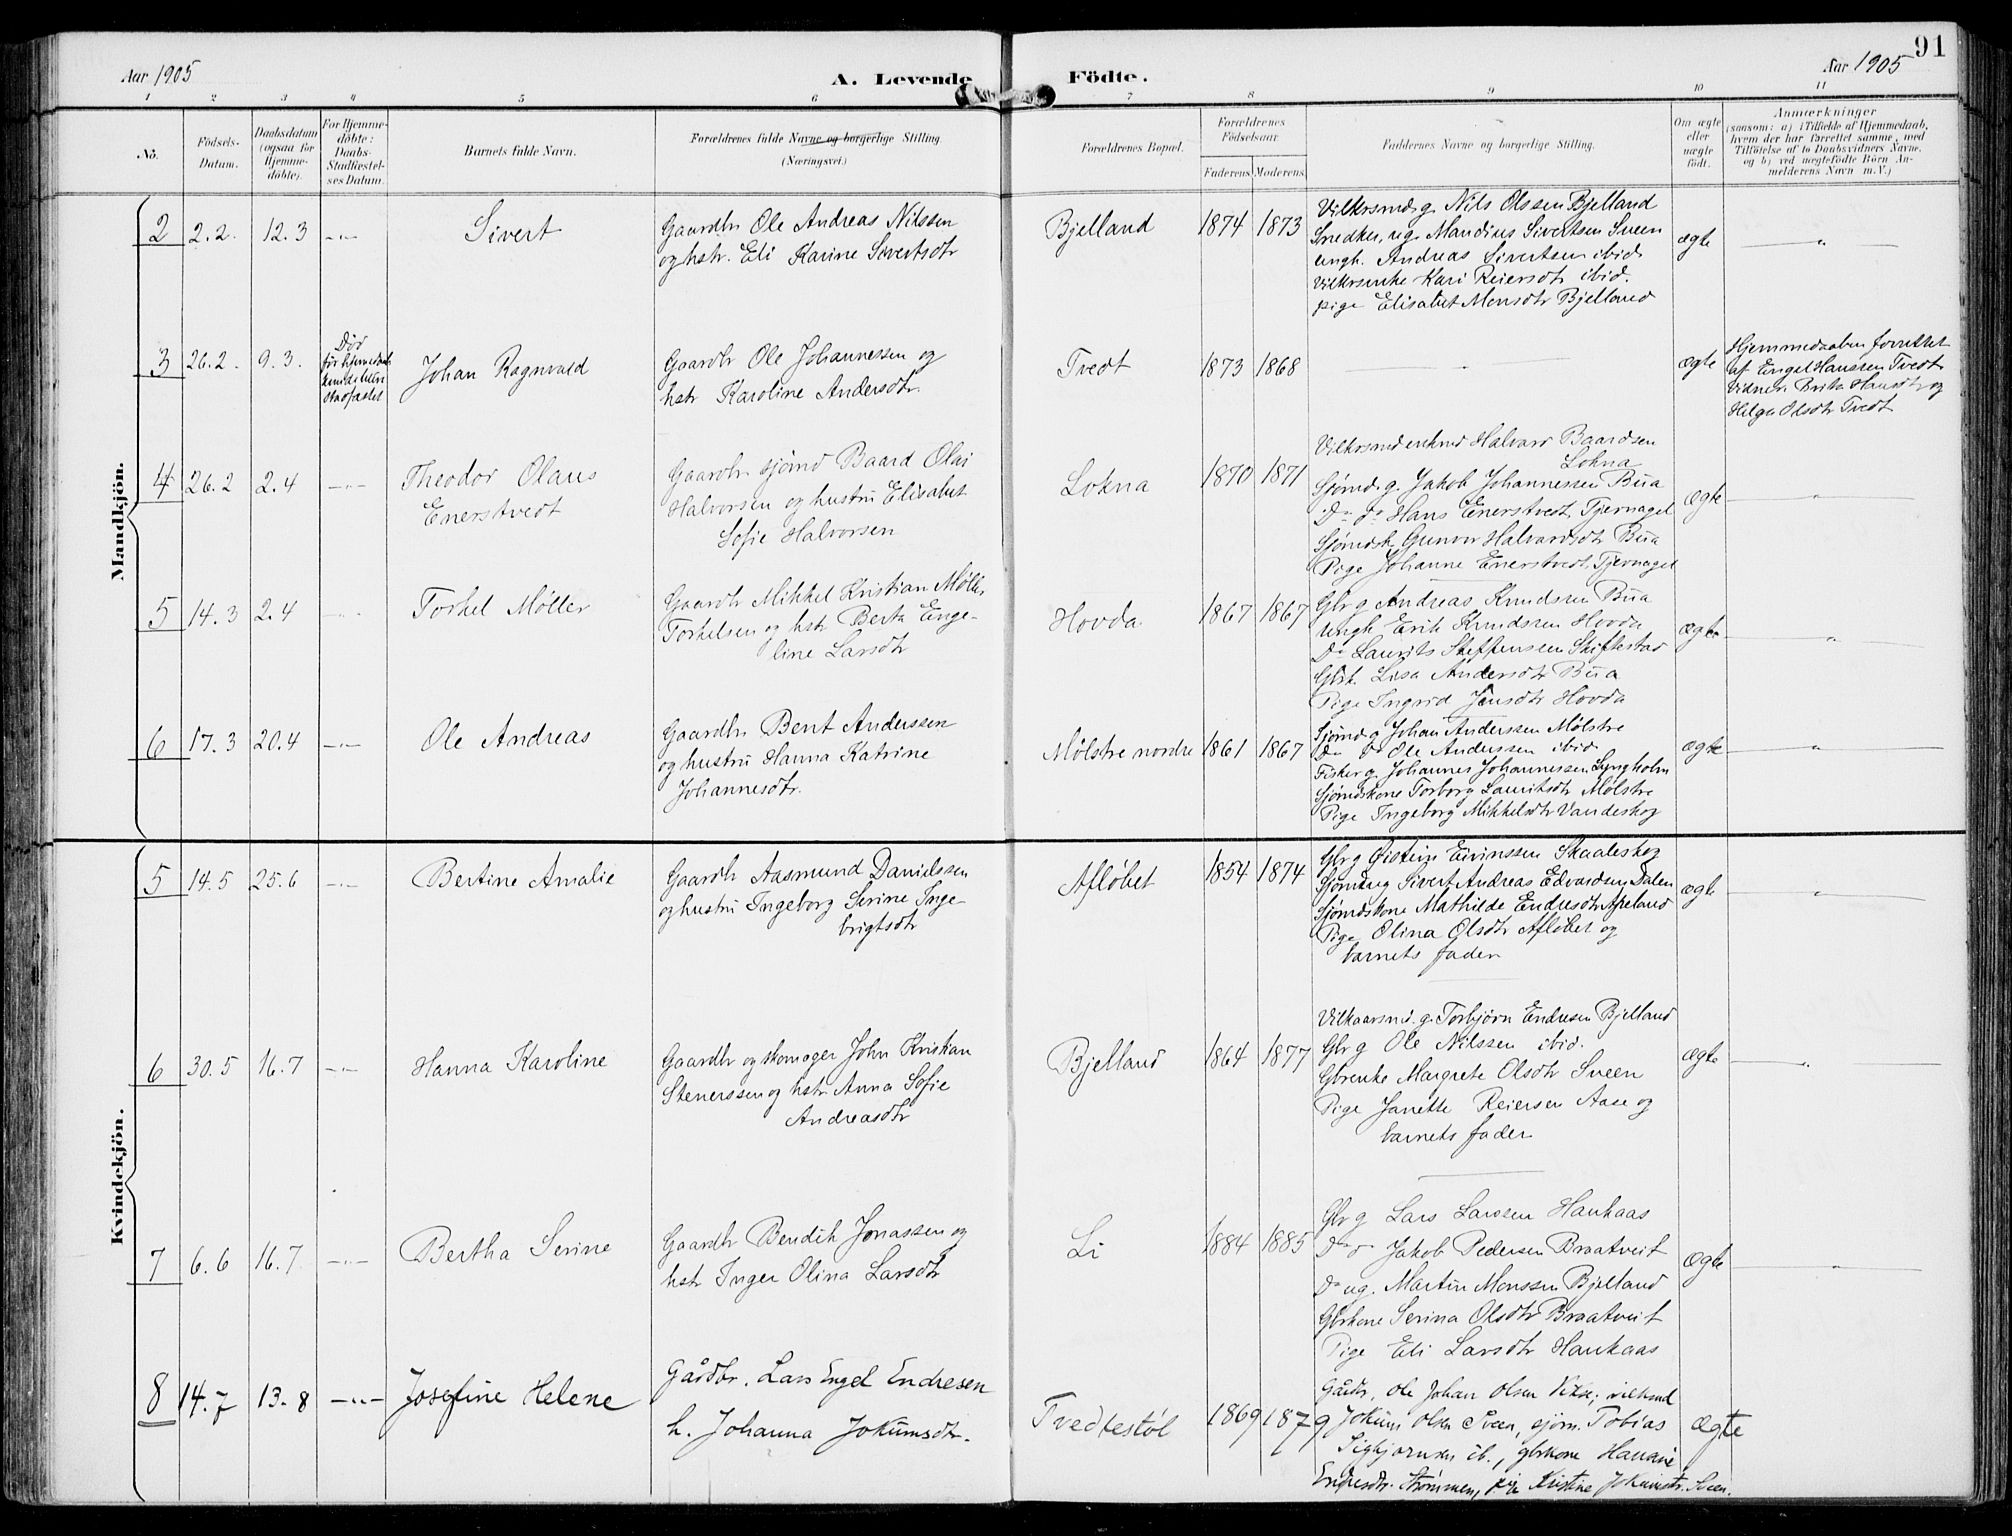 91
Aar 1905
A. Levende Födte.
Aar 1905
1 2 3 4 5 6 7 8 9 10 11
No.
Födsels-
Datum.
Daabsdatum
(ogsaa for
Hjemme-
döbte).
For Hjemme-
döbte:
Daabs-
Stadfæstel-
ses Datum.
Barnets fulde Navn.
Forældrenes fulde Navne og borgerlige Stilling.
(Næringsvei.)
Forældrenes Bopæl.
Forældrenes
Födselsaar.
Faderens Moderens
Faddernes Navne og borgerlige Stilling.
Om ægte
eller
uægte
født.
Anmærkninger
(saasom: a) i Tilfælde af Hjemmedaab,
hvem der har forrettet samme, med
Tilföielse af to Daabsvidners Navne.
og b) ved uægtefödte Börn An-
melderens Navn m.V.)
Mandkjön.
2
2.2.
12.3
-"-
Sivert
Gaardbr Ole Andreas Nilssen
og hstr. Eli Karine Sivertsdtr
Bjelland
1874 1873
Vilkrsmd g. Nils Olssen Bjelland
Snedker, ug. Mandius Sivertsen Sveen
ungk. Andreas Sivertsen ibid.
Vilkrsenke Kari Reiersdtr ibid.
pige Elisabet Monsdtr Bjelland
ægte
"
3
26.2.
9.3.
Død
før hjemmedaaben
kunde blive
stadfæstet
Johan Ragnvald
Gaardbr Ole Johannessen og
hstr Karoline Andersdtr.
Tvedt
1873 1868
"
ægte
Hjemmedaaben forrettet
af Engel Hanssen Tvedt
Vidner: Brita Hansdtr og
Helga Olsdtr Tvedt
4
26.2
2.4
-"-
Theodor Olaus
Enerstvedt
Gaardbr sjömd Baard Olai
Halvorsen og hustru Elisabet
Sofie Halvorsen
Lokna
1870 1871
Vilkrsmd enkmd Halvard Baardsen
Lokna
Sjömd. g. Jakob Johannessen Bua
Do do Hans Enerstvedt Tjernagel
Sjömdsk Gunvor Halvardsdtr Bua
Pige Johanne Enerstvedt Tjernagel
ægte
"
5
14.3
2.4
-"-
Torkel Møller
Gaardbr Mikkel Kristian Møller
Torkelsen og hstr Berta Enge-
line Larsdtr
Hovda
1867 1867
Gbr g Andreas Knudsen Bua
Ungk. Erik Knudssen Hovda
Do Laurits Steffensen Skiftestad
Gbrk. Lisa Andersdtr Bua
Pige Ingrid Jensdtr Hovda
ægte
"
6
17.3
20.4
-"-
Ole Andreas
Gaardbr Bent Anderssen
og hustru Hanna Katrine
Johannesdtr.
Mølstre nordre
1861 1867
Sjömd g Johan Anderssen Mølstre
Do do Ole Anderssen ibid
Fisker g. Johannes Johannessen Lyngholm
Sjömdskone Torborg Lauritsdtr Mølstre
Pige Ingeborg Mikkelsdtr Vandeskog
ægte
"
Kvindekjön.
5
14.5
25.6
-"-
Bertine Amalie
Gaardbr Aasmund Danielssen
og hustru Ingeborg Serine Inge-
brigtsdtr
Afløbet
1854 1874
Gbr g Øistein Eivinssen Skaaleskog
Sjömd ug Sivert Andreas Edvardsen Dalen
Sjömdskone Mathilde Endresdtr Apeland
Pige Olina Olsdtr Afløbet og
barnets fader
ægte
"
6
30.5
16.7
-"-
Hanna Karoline
Gaardbr og skomager John Kristian
Stenerssen og hstr Anna Sofie
Andreasdtr
Bjelland
1864 1877
Vilkaarsmd. g. Torbjørn Endresen Bjelland
Gbr g Ole Nilssen ibid.
Gbrenke Margrete Olsdtr Sveen
Pige Janette Reiersen Aase og
barnets fader
ægte
"
7
6.6
16.7
-"-
Bertha Serine
Gaardbr Bendik Jonassen og
hstr Inger Olina Larsdtr
Li
1884 1885
Gbr g Lars Larssen Haukaas
Do do Jakob Pedersen Braatveit
Do ug. Martin Monssen Bjelland
Gbrkone Serina Olsdtr Braatveit
Pige Eli Larsdtr Haukaas
ægte
"
8
14.7
13.8
-"-
Josefine Helene
Gårdbr. Lars Engel Endresen
h. Johanna Jokumsdtr.
Tvedtestøl
1869 1879
Gårdbr. Ole Johan Olsen Vikse, vilkmd
Jokum Olsen Sveen, sjöm. Tobias
Sigbjørnsen ib., gbrkone Hanna
Endresdtr. Strømmen, pige Kristine Jokumsdtr. Sveen.
ægte